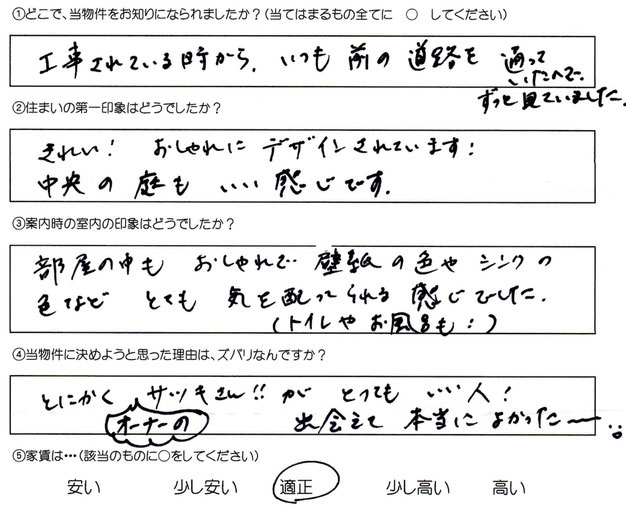 ①どこで、当物件をお知りになられましたか？(当てはまるもの全てに ○ してください)
工事されている時から、いつも前の道路を通って
いたので、
ずっと見ていました。
②住まいの第一印象はどうでしたか？
きれい！ おしゃれにデザインされています！
中央の庭もいい感じです。
③案内時の室内の印象はどうでしたか？
部屋の中もおしゃれで壁紙の色やシンクの
色などとても気を配ってられる感じでした。
(トイレやお風呂も！)
④当物件に決めようと思った理由は、ズバリなんですか？
とにかくサツキさん!!がとってもいい人！
オーナーの
出会えて本当によかった〜
⑤家賃は…(該当のものに○をしてください)
安い 少し安い 適正 少し高い 高い